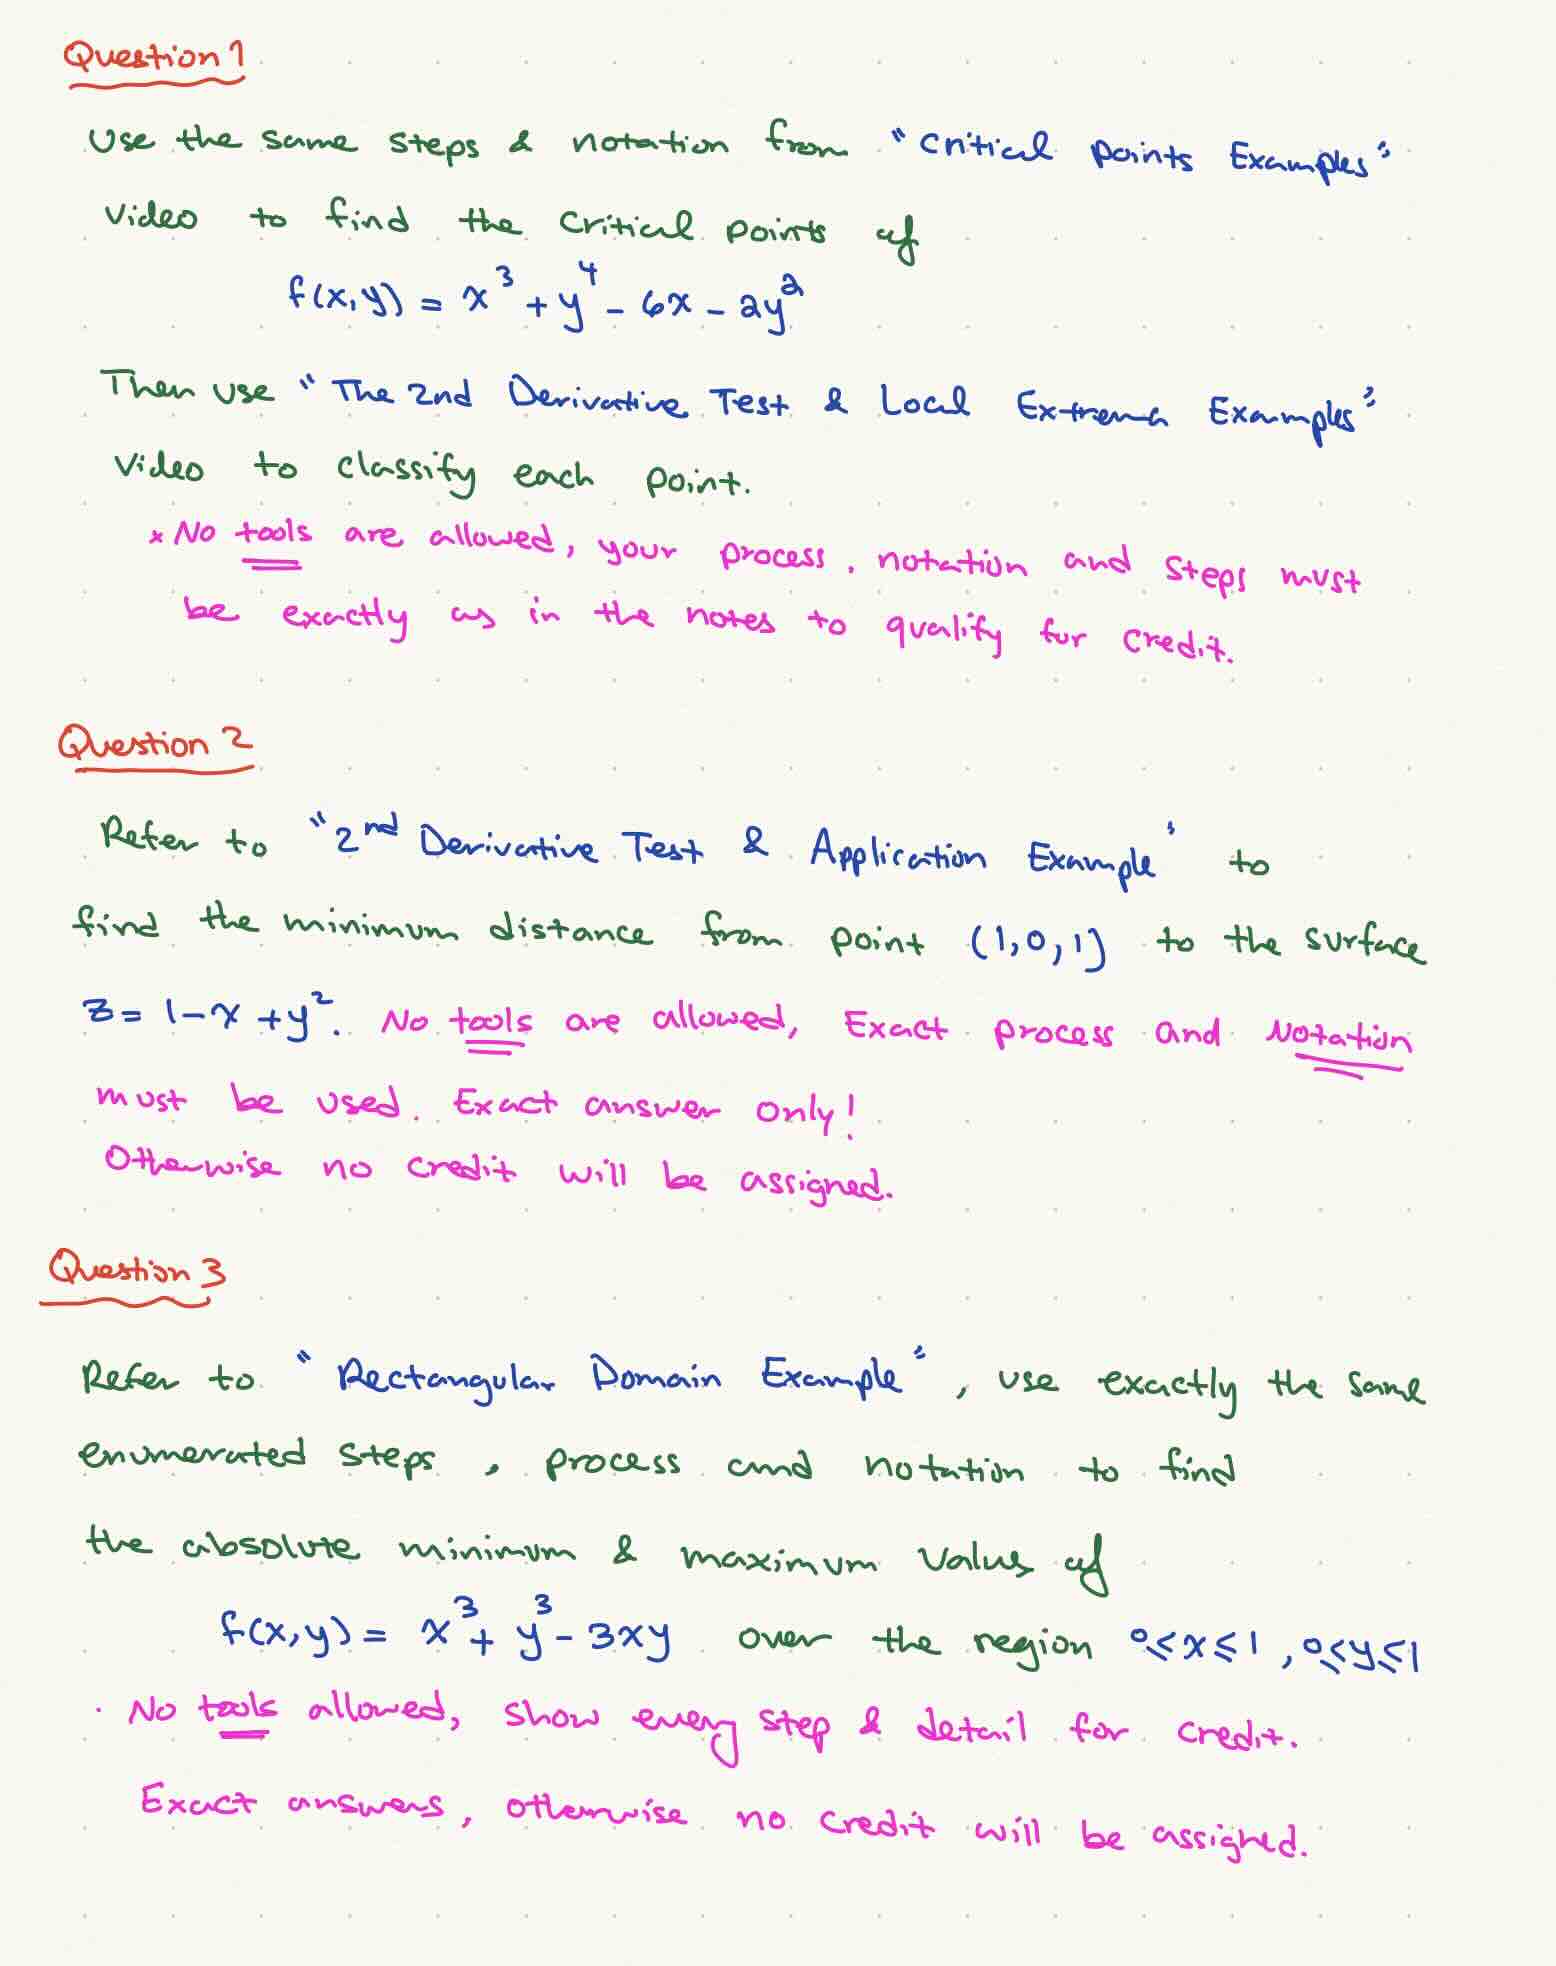 Question 1
Use the same steps & notation from "Critical Points Examples"
video to find the critical points of
f(x,y) = x³ + y⁴ - 6x - 2y²
Then use "The 2nd Derivative Test & Local Extrema Examples"
video to classify each point.
* No tools are allowed, your process, notation and steps must
be exactly as in the notes to qualify for credit.
Question 2
Refer to "2nd Derivative Test & Application Example" to
find the minimum distance from point (1,0,1) to the surface
z = 1-x+y². No tools are allowed, Exact process and Notation
must be used. Exact answer only!
Otherwise no credit will be assigned.
Question 3
Refer to "Rectangular Domain Example", use exactly the same
enumerated steps, process and notation to find
the absolute minimum & maximum values of
f(x,y) = x³ + y³ - 3xy over the region 0≤x≤1, 0≤y≤1
· No tools allowed, show every step & detail for credit.
Exact answers, otherwise no credit will be assigned.